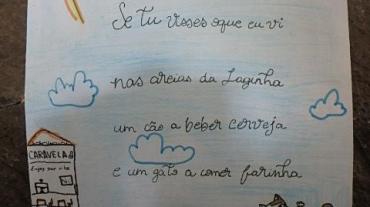 Se tu visses oque eu vi
nas areias da Laginha
um cão a beber cerveja
e um gato a comer farinha
CARAVELA